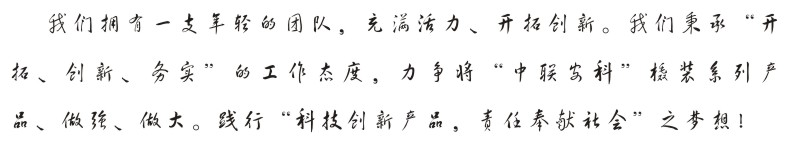 我们拥有一支年轻的团队，充满活力、开拓创新。我们秉承“开
拓、创新、务实”的工作态度，力争将“中联安科”橃装系列产
品、做强、做大。践行“科技创新产品，责任奉献社会”之梦想！